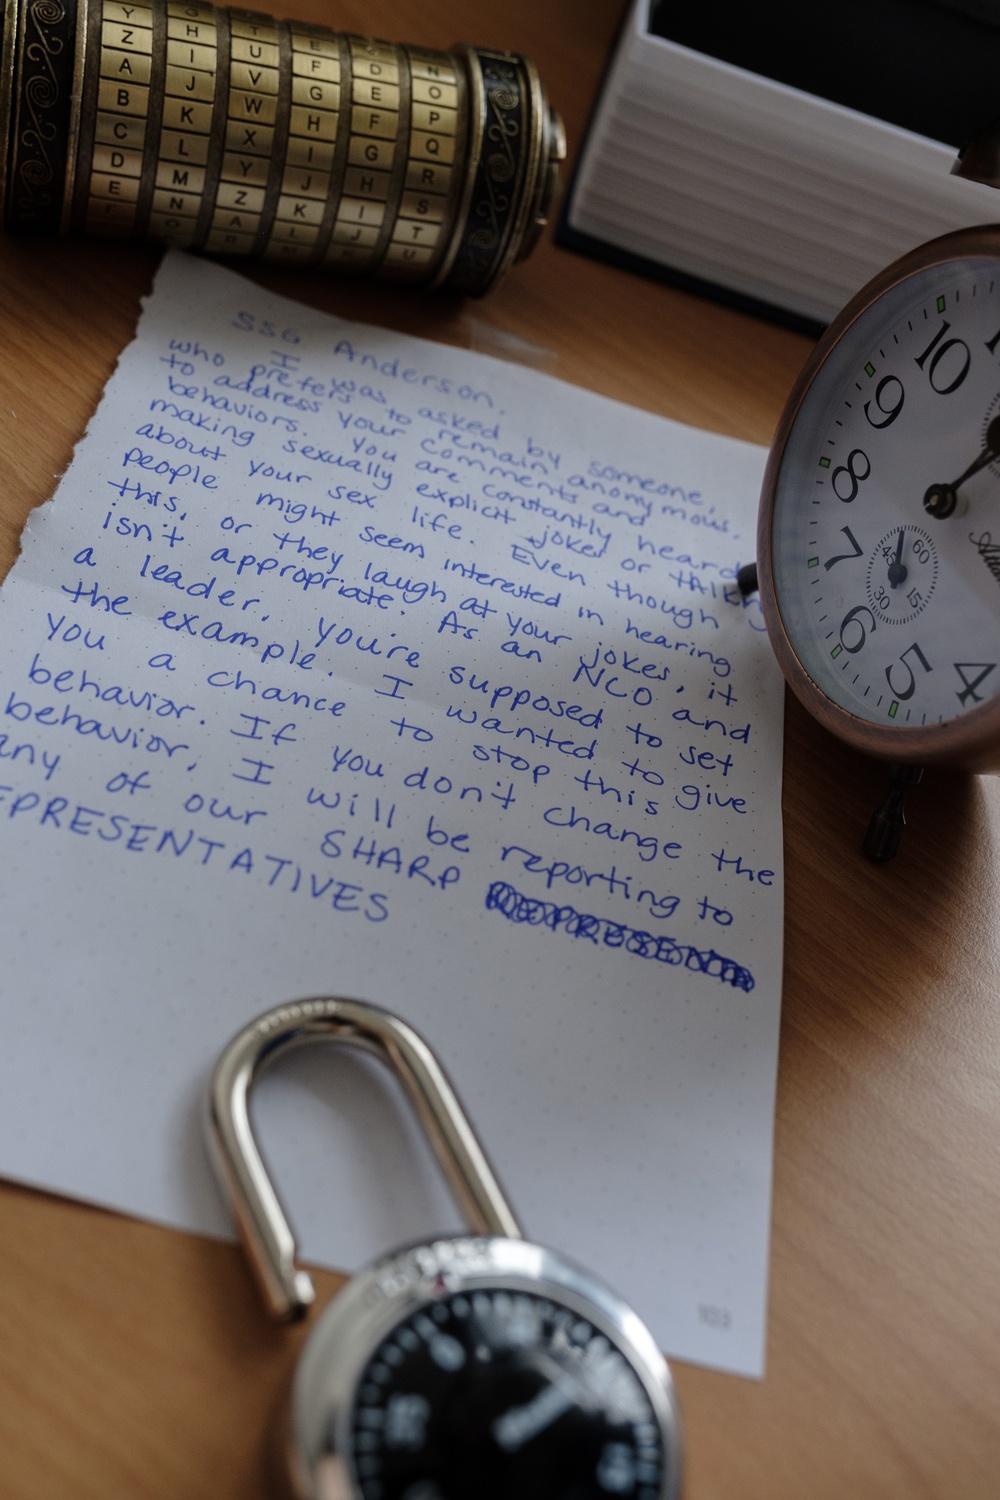 Y H U E N
Z I V F D O
A J W G E P
B K X H F Q
C L Y I G R
D M Z J H S
E N A K I T
SSG Anderson.
I was asked by someone,
who prefers to remain anonymous,
to address your comments and
behaviors. You are constantly heard
making sexually explicit jokes or talking
about your sex life. Even though
people might seem interested in hearing
this, or they laugh at your jokes, it
isn't appropriate. As an NCO and
a leader, you're supposed to set
the example. I wanted to give
you a chance to stop this
behavior. If you don't change the
behavior, I will be reporting to
any of our SHARP
EPRESENTATIVES
10
9
8
7
6
5
4
60
45
30
15